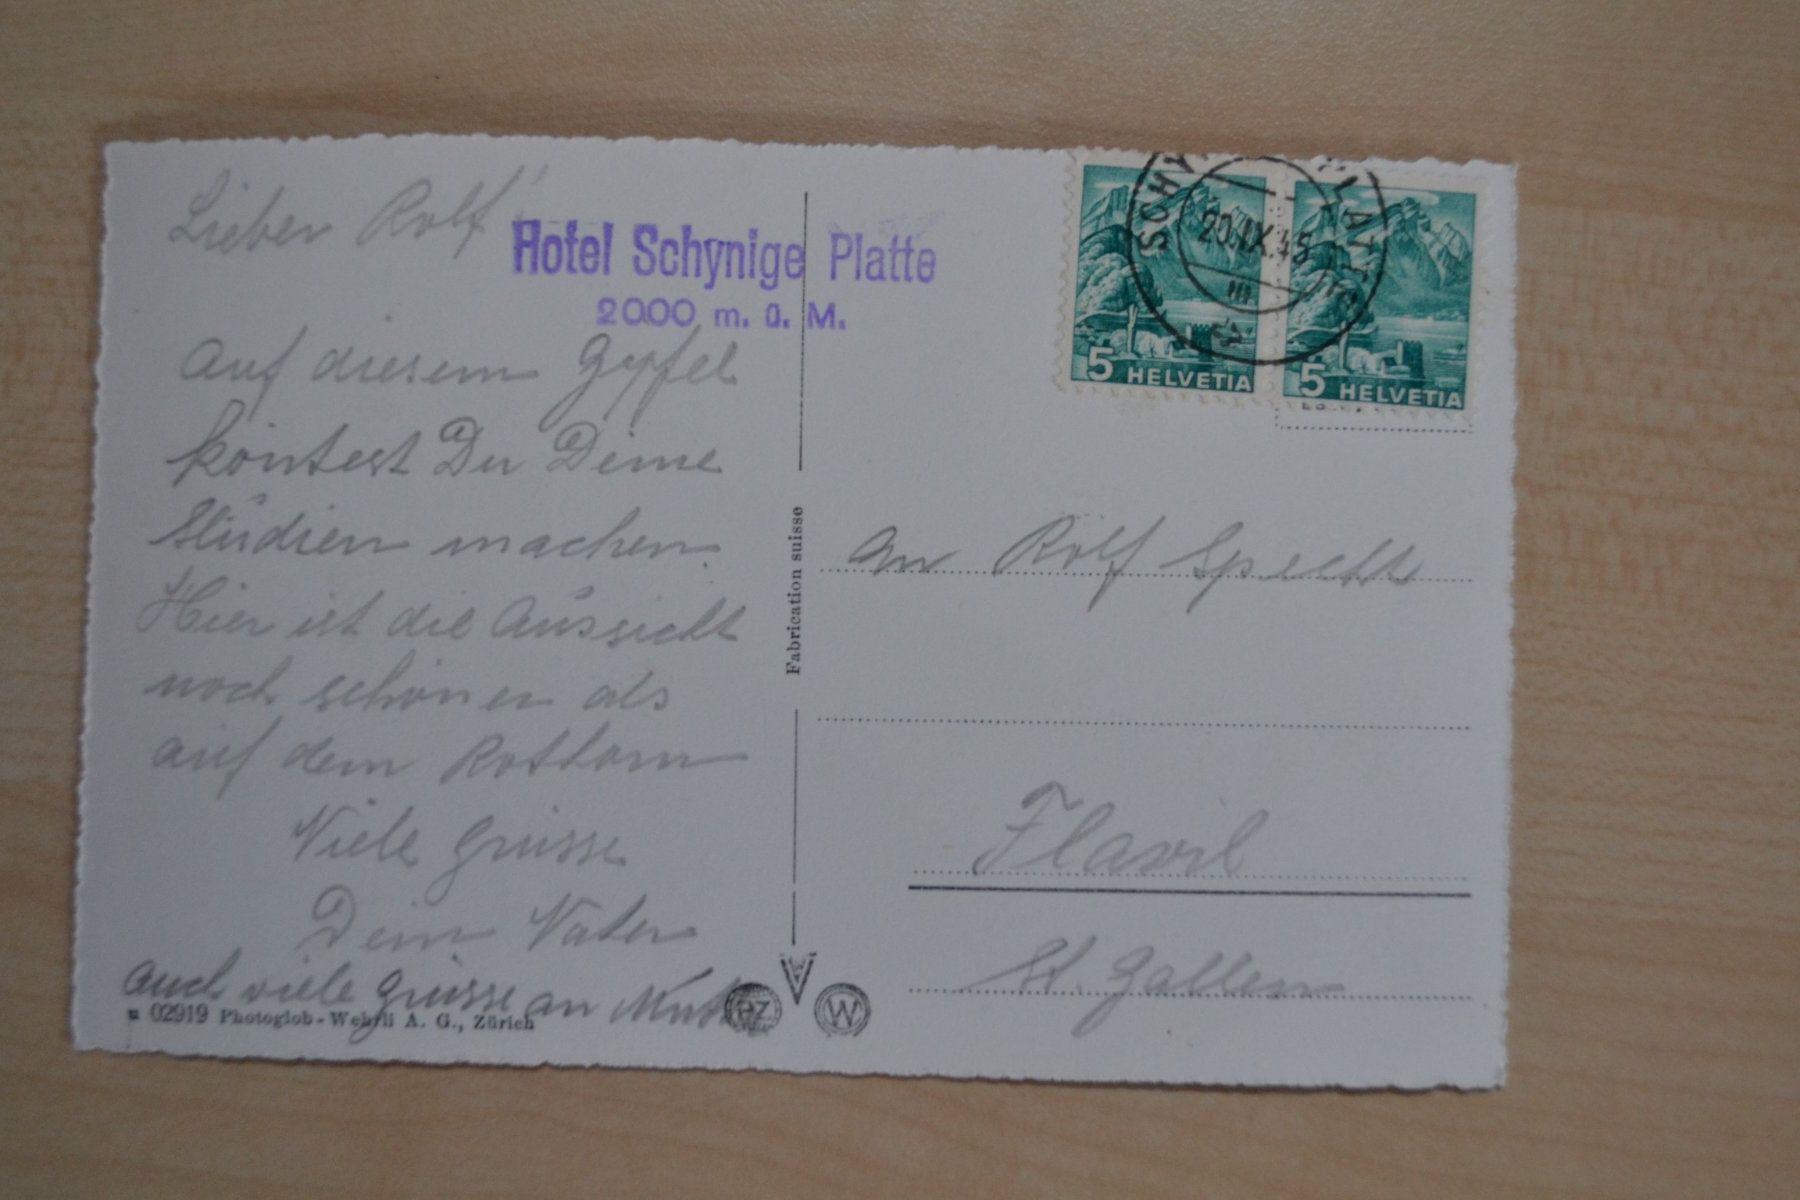 Lieber Rolf!
Hotel Schynige Platte
2000 m. ü. M.
Auf diesem Gypfel
köntest Du Deine
Stüdien machen.
Hier ist die Aussicht
noch schöner als
auf dem Rothorn
Viele grüsse
Dein Vater
auch viele grüsse an
02919 Photoglob-Wehrli A. G., Zürich
Fabrication suisse
PZ
W
20.IX.45
5 HELVETIA
5 HELVETIA
An Rolf Specht
Flawil
St. Gallen